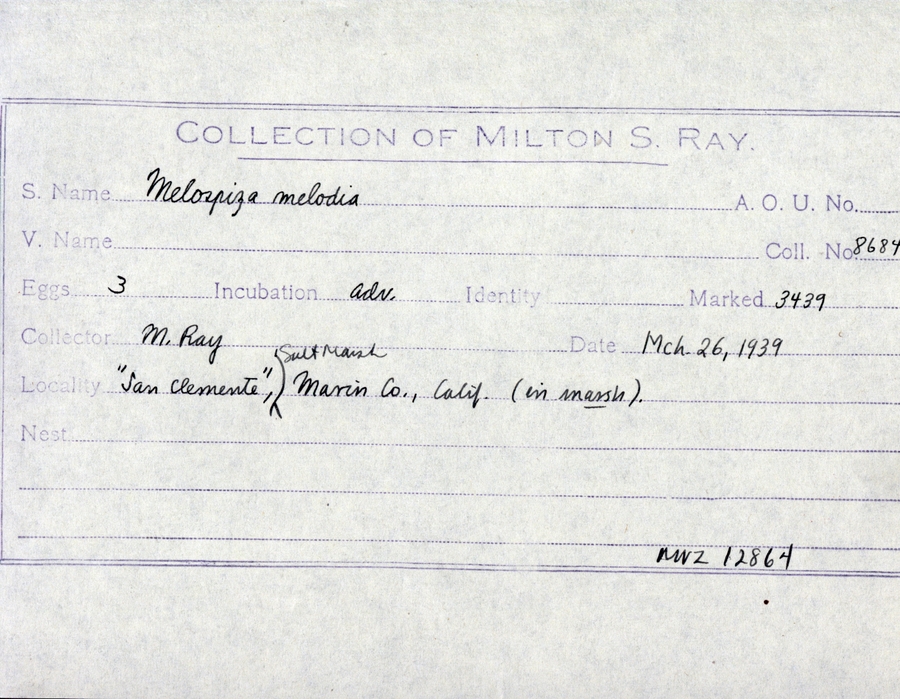 COLLECTION OF MILTON S. RAY.
S. Name Melospiza melodia A. O. U. No.
V. Name Coll. No. 8684
Eggs 3 Incubation adv. Identity Marked 3439
Collector M. Ray Date Mch. 26, 1939
Salt Marsh
Locality "San Clemente", Marin Co., Calif. (in marsh).
Nest
MVZ 12864